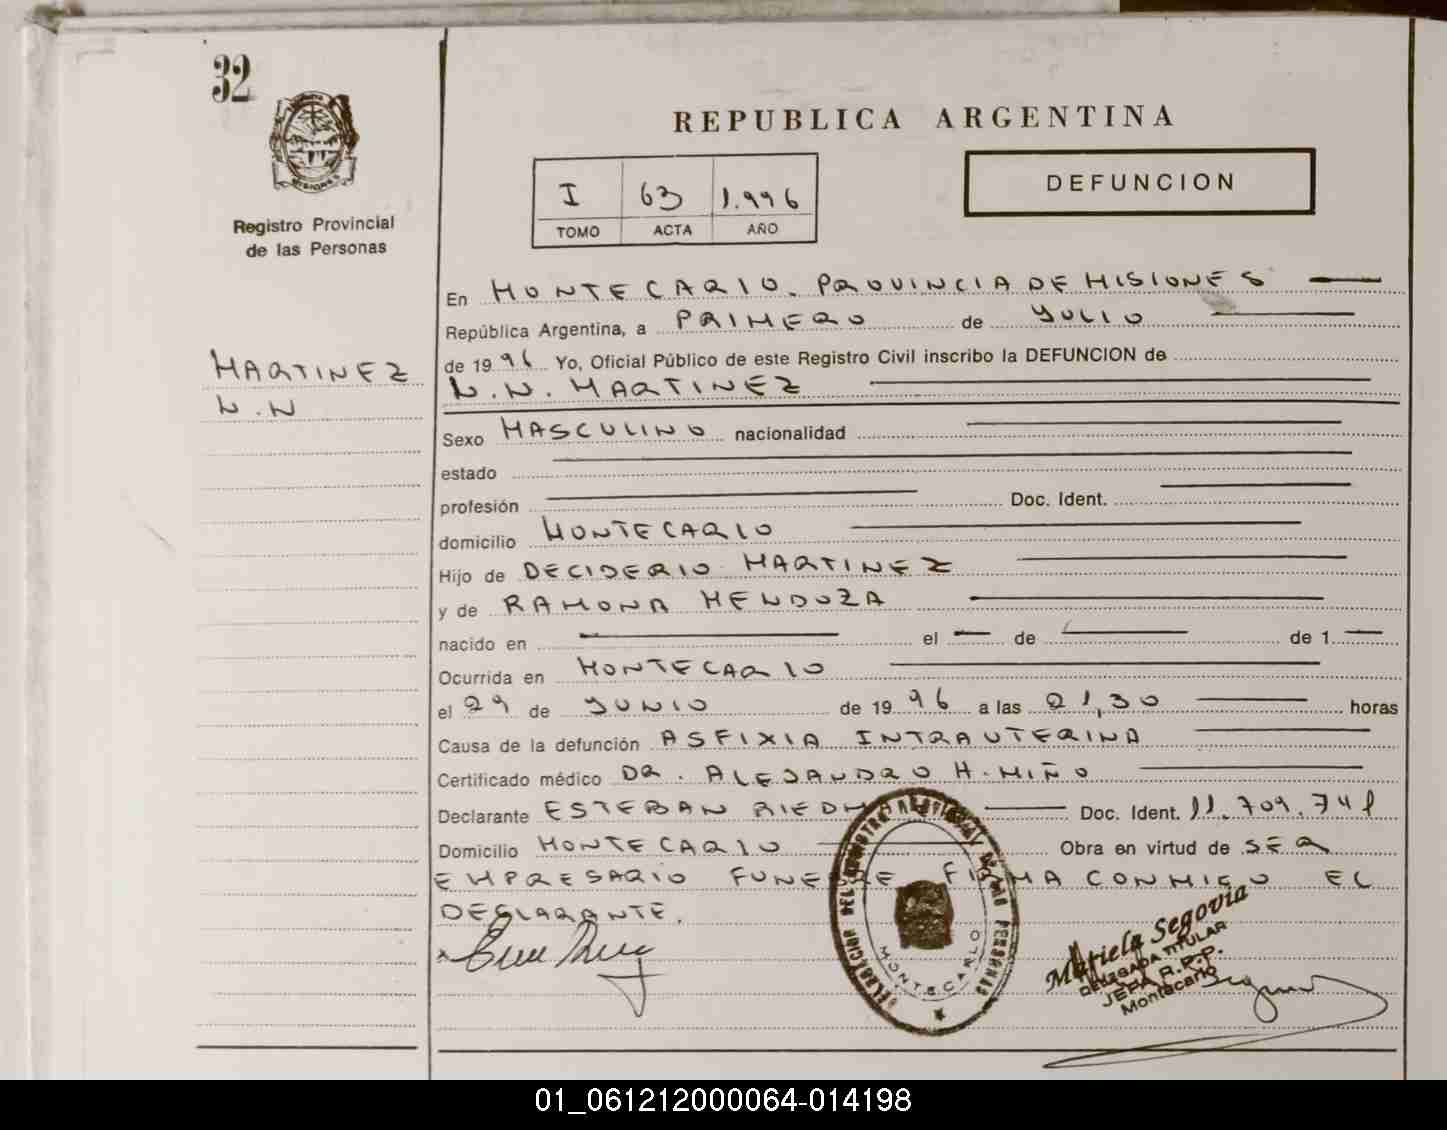 32
MISIONES
Registro Provincial
de las Personas
MARTINEZ
N.N
REPUBLICA ARGENTINA
I 63 1.996
TOMO ACTA AÑO
DEFUNCION
En MONTECARLO. PROVINCIA DE MISIONES
República Argentina, a PRIMERO de JULIO
de 19 96 Yo, Oficial Público de este Registro Civil inscribo la DEFUNCION de
N.N. MARTINEZ
Sexo MASCULINO nacionalidad
estado
profesión Doc. Ident.
domicilio MONTECARLO
Hijo de DECIDERIO MARTINEZ
y de RAMONA MENDOZA
nacido en el de de 1
Ocurrida en MONTECARLO
el 29 de JUNIO de 19 96 a las 21,30 horas
Causa de la defunción ASFIXIA INTRAUTERINA
Certificado médico DR. ALEJANDRO H. MIÑO
Declarante ESTEBAN Doc. Ident. 11.709.741
Domicilio MONTECARLO Obra en virtud de SER
EMPRESARIO FUNEBRE FIRMA CONMIGO EL
DECLARANTE.
DELEGACION DEL REGISTRO PROVINCIAL DE LAS PERSONAS
MONTECARLO
Mariela Segovia
DELEGADA TITULAR
JEFA R.P.P.
Montecarlo
01_061212000064-014198